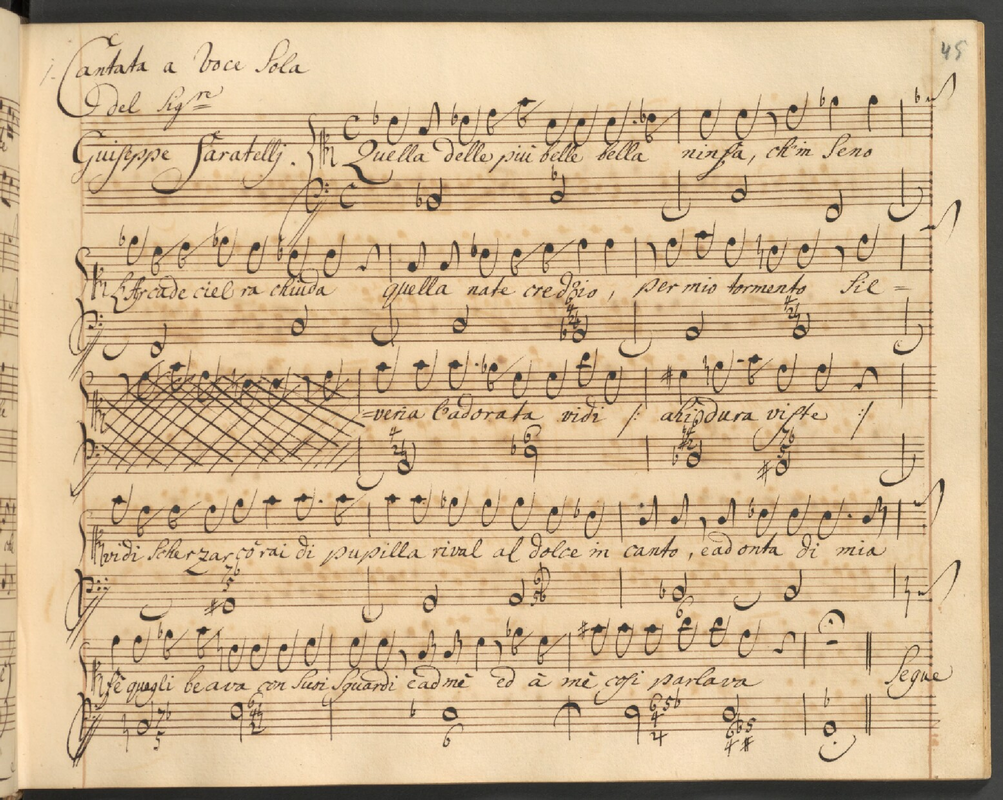 45
Cantata a Voce Sola
del Sigre
Giuseppe Faratellj.
Quella delle più belle bella ninfa, ch'in Seno
L'Arcade ciel ra chiuda quella nate cred'io, per mio tormento Sil=
=veria l'adorata vidi /: ahi dura viste :/
vidi Scherzar cō rai di pupilla rival al dolce in canto, e ad onta di mia
fè quegli beava con Suoi Sguardi e ad mè ed à mè cosi parlava
Segue